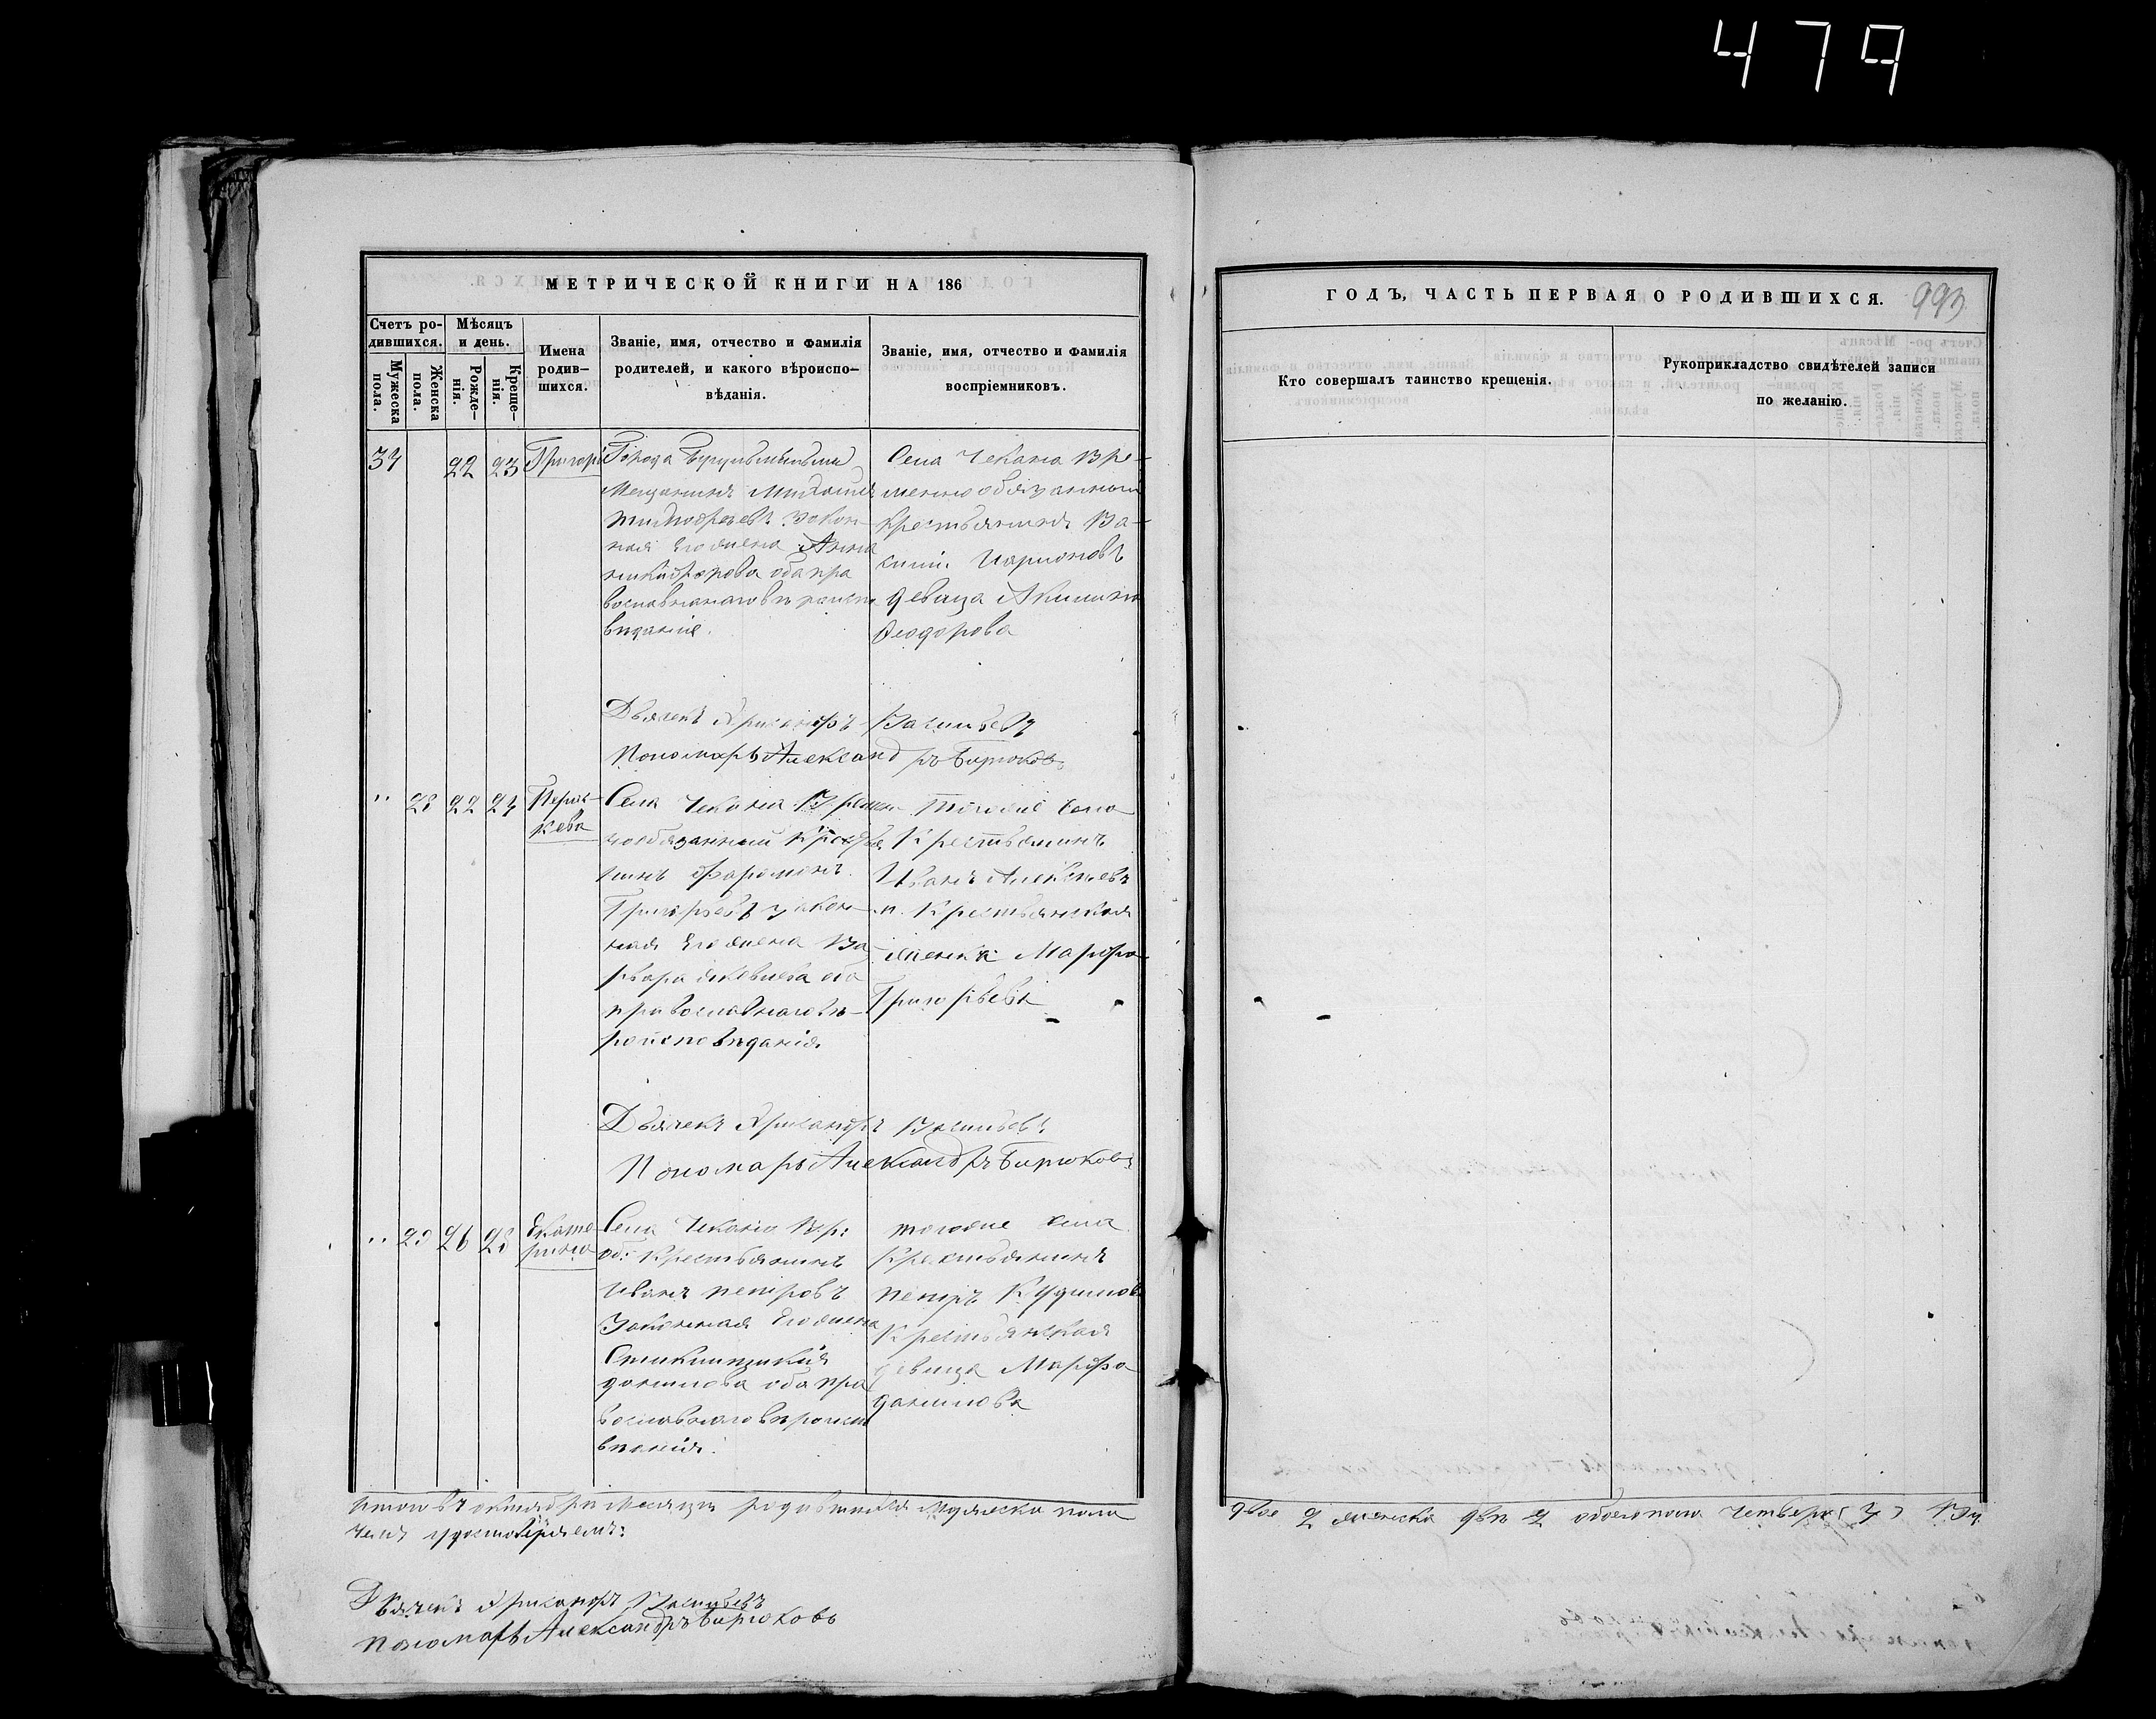 479
МЕТРИЧЕСКОЙ КНИГИ НА 186
Счетъ ро-
дившихся.
Мѣсяцъ
и день.
Мужеска
пола.
Женска
пола.
Рожде-
нія.
Креще-
нія.
Имена
родив-
шихся.
Званіе, имя, отчество и фамилія
родителей, и какого вѣроиспо-
вѣданія.
Званіе, имя, отчество и фамилія
воспріемниковъ.
22 23 Григорій
Города Бугульмы
Мещанинъ
закон-
ная его жена Анна
Никифорова оба пра
вославнаго вѣроиспо
вѣданія.
Села Чекана Вре-
меннообязанный
Крестьянинъ Ва-
девица Акилина
Феодорова
Дьячекъ Никаноръ Васильевъ
Пономарь Александръ Бирюковъ
" 28 22 24 Парас-
кева
Села Чекана Времен-
нообязанный Крестья
нинъ
Григорьевъ закон-
ная его жена Ва-
рвара Яковлева оба
православнаго вѣ-
роисповѣданія
Того же села
Крестьянинъ
Иванъ Алексѣевъ
и Крестьянская
женка Марфа
Григорьева
Дьячекъ Никаноръ Васильевъ
Пономарь Александръ Бирюковъ
" 29 26 28 Екате
рина
Села Чекана Вр:
об: Крестьянинъ
Иванъ Петровъ
Законная его жена
Данилова оба пра
вославнаго вѣроиспо
вѣданія.
того же села
Крестьянинъ
Петръ
Крестьянская
девица Марфа
Данилова
Итого въ октябрѣ Месяцѣ родившихся мужеска пола
чемъ и удостоверяемъ:
Дьячекъ Никаноръ Васильевъ
Пономарь Александръ Бирюковъ
ГОДЪ, ЧАСТЬ ПЕРВАЯ О РОДИВШИХСЯ.
993
Кто совершалъ таинство крещенія.
Рукоприкладство свидѣтелей записи
по желанію.
двое 2 женска двѣ 2 обоего пола четверо (4) въ